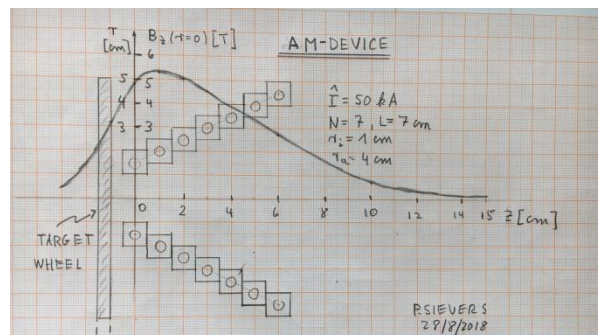 AM-DEVICE
r [cm]
B_z (r=0) [T]
6
5 5
4 4
3 3
Î = 50 kA
N = 7 , L = 7 cm
r_i = 1 cm
r_a = 4 cm
0 2 4 6 8 10 12 14 15 Z [cm]
TARGET
WHEEL
P.SIEVERS
28/8/2018